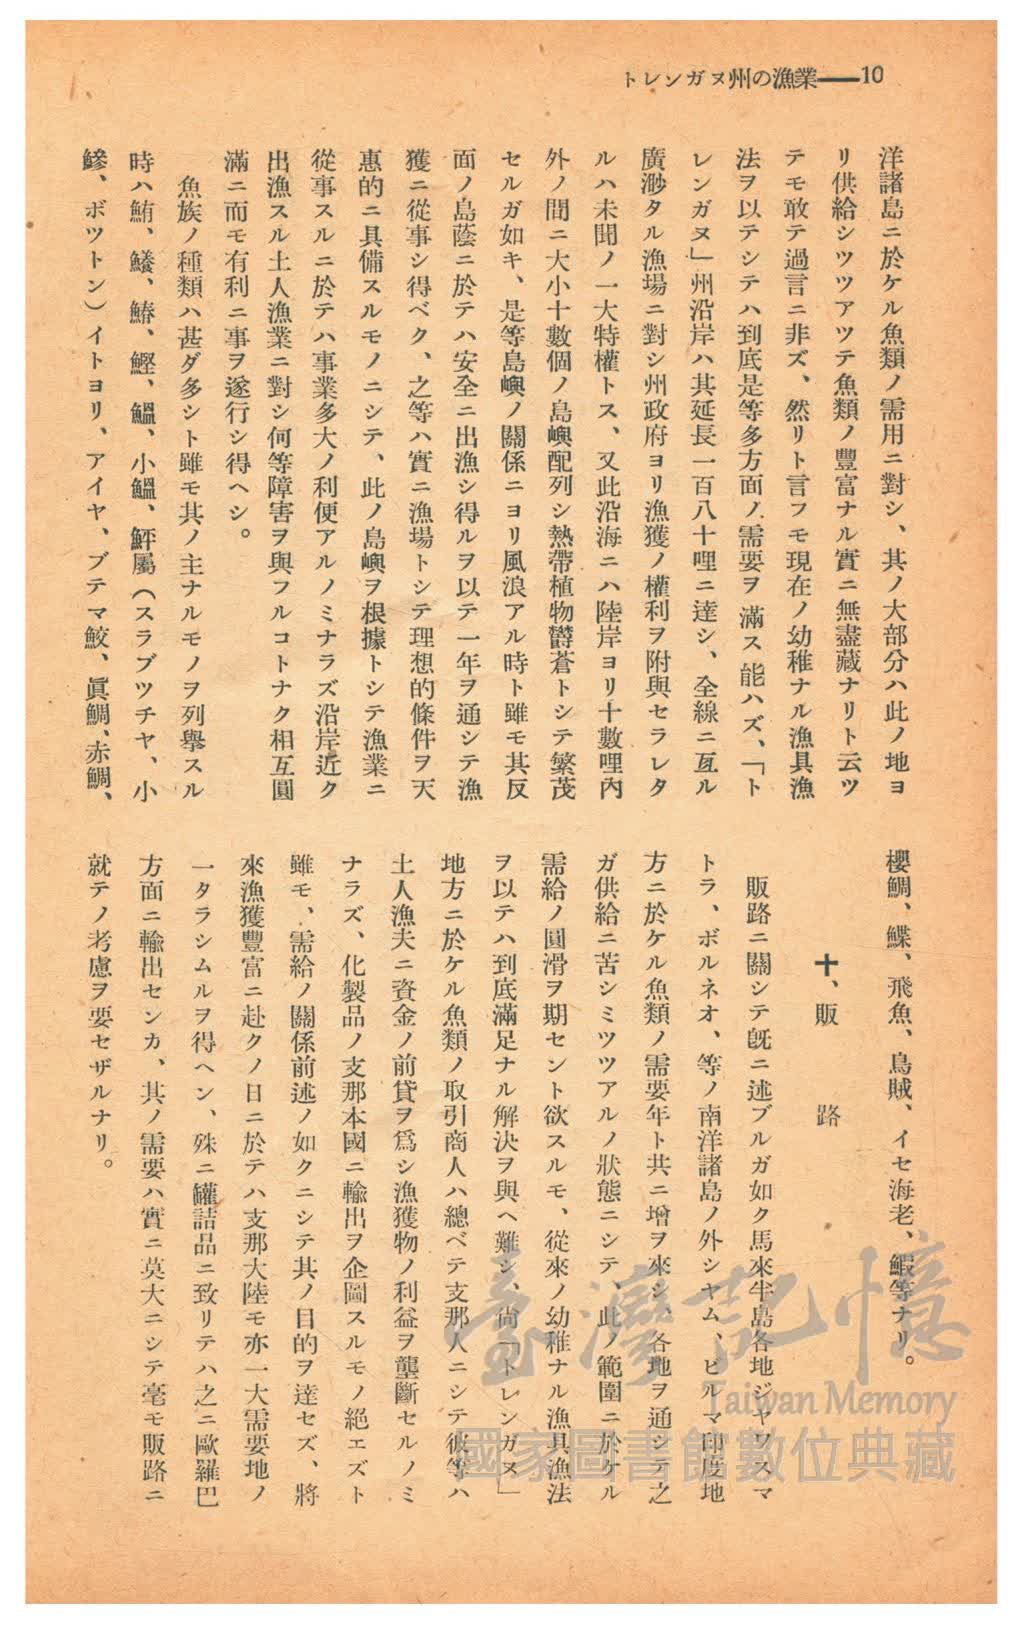 トレンガヌ州の漁業――10
洋諸島ニ於ケル魚類ノ需用ニ對シ、其ノ大部分ハ此ノ地ヨ
リ供給シツツアツテ魚類ノ豐富ナル實ニ無盡藏ナリト云ツ
テモ敢テ過言ニ非ズ、然リト言フモ現在ノ幼稚ナル漁具漁
法ヲ以テシテハ到底是等多方面ノ需要ヲ滿ス能ハズ、「ト
レンガヌ」州沿岸ハ其延長一百八十哩ニ達シ、全線ニ亙ル
廣渺タル漁場ニ對シ州政府ヨリ漁獲ノ權利ヲ附與セラレタ
ルハ未聞ノ一大特權トス、又此沿海ニハ陸岸ヨリ十數哩內
外ノ間ニ大小十數個ノ島嶼配列シ熱帶植物欝蒼トシテ繁茂
セルガ如キ、是等島嶼ノ關係ニヨリ風浪アル時ト雖モ其反
面ノ島蔭ニ於テハ安全ニ出漁シ得ルヲ以テ一年ヲ通シテ漁
獲ニ從事シ得ベク、之等ハ實ニ漁場トシテ理想的條件ヲ天
惠的ニ具備スルモノニシテ、此ノ島嶼ヲ根據トシテ漁業ニ
從事スルニ於テハ事業多大ノ利便アルノミナラズ沿岸近ク
出漁スル土人漁業ニ對シ何等障害ヲ與フルコトナク相互圓
滿ニ而モ有利ニ事ヲ遂行シ得ヘシ。
魚族ノ種類ハ甚ダ多シト雖モ其ノ主ナルモノヲ列擧スル
時ハ鮪、鱶、鰆、鰹、鰮、小鰮、鮃屬（スラブツチヤ、小
鰺、ボツトン）イトヨリ、アイヤ、ブテマ鮫、眞鯛、赤鯛、
櫻鯛、鰈、飛魚、烏賊、イセ海老、鰕等ナリ。
十、販路
販路ニ關シテ旣ニ述ブルガ如ク馬來半島各地ジヤワスマ
トラ、ボルネオ、等ノ南洋諸島ノ外シヤム、ビルマ印度地
方ニ於ケル魚類ノ需要年ト共ニ增ヲ來シ、各地ヲ通シテ之
ガ供給ニ苦シミツツアルノ狀態ニシテ、此ノ範圍ニ於ケル
需給ノ圓滑ヲ期セント欲スルモ、從來ノ幼稚ナル漁具漁法
ヲ以テハ到底滿足ナル解決ヲ與ヘ難シ、尙「トレンガヌ」
地方ニ於ケル魚類ノ取引商人ハ總ベテ支那人ニシテ彼等ハ
土人漁夫ニ資金ノ前貸ヲ爲シ漁獲物ノ利益ヲ壟斷セルノミ
ナラズ、化製品ノ支那本國ニ輸出ヲ企圖スルモノ絕エズト
雖モ、需給ノ關係前述ノ如クニシテ其ノ目的ヲ達セズ、將
來漁獲豐富ニ赴クノ日ニ於テハ支那大陸モ亦一大需要地ノ
一タラシムルヲ得ヘン、殊ニ罐詰品ニ致リテハ之ニ歐羅巴
方面ニ輸出センカ、其ノ需要ハ實ニ莫大ニシテ毫モ販路ニ
就テノ考慮ヲ要セザルナリ。
臺灣記憶
Taiwan Memory
國家圖書館數位典藏